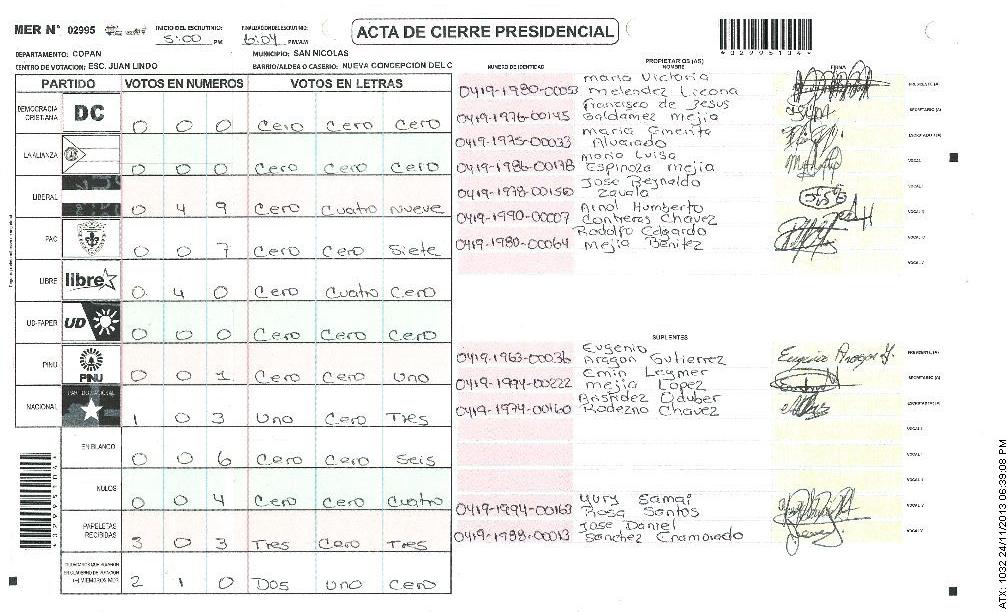 MER N° 02995
INICIO DEL ESCRUTINIO: 5:00 PM
FINALIZACION DEL ESCRUTINIO: 6:04 PM/AM
ACTA DE CIERRE PRESIDENCIAL
4029951044
DEPARTAMENTO: COPAN
MUNICIPIO: SAN NICOLAS
CENTRO DE VOTACION: ESC. JUAN LINDO
BARRIO/ALDEA O CASERIO: NUEVA CONCEPCION DEL C
PARTIDO VOTOS EN NUMEROS VOTOS EN LETRAS
DEMOCRACIA CRISTIANA DC 0 0 0 Cero Cero Cero
LA ALIANZA 0 0 0 Cero Cero Cero
LIBERAL 0 4 9 Cero Cuatro Nueve
PAC 0 0 7 Cero Cero Siete
LIBRE libre 0 4 0 Cero Cuatro Cero
UD-FAPER UD 0 0 0 Cero Cero Cero
PINU PINU 0 0 1 Cero Cero Uno
NACIONAL 1 0 3 Uno Cero Tres
EN BLANCO 0 0 6 Cero Cero Seis
NULOS 0 0 4 Cero Cero Cuatro
PAPELETAS RECIBIDAS 3 0 3 Tres Cero Tres
(+) MIEMBROS MER 2 1 0 Dos Uno Cero
NUMERO DE IDENTIDAD
PROPIETARIOS (AS)
NOMBRE
FIRMA
Maria Victoria
0419-1980-00053 Melendez Licona PRESIDENTE (A)
Francisco de Jesus
0419-1976-00145 Galdamez Mejia SECRETARIO (A)
0419-1975-00033 Alvarado ESCRUTADOR (A)
Maria Luisa
0419-1986-00178 Espinoza Mejia VOCAL I
Jose Reynaldo
0419-1978-00150 Zavala
Arnol Humberto
0419-1990-00007 Contreras Chavez
Rodolfo Edgardo
0419-1980-00064 Mejia Benitez
VOCAL V
SUPLENTES
Eugenio
0419-1963-00036 Aragon Gutierrez Eugenio Aragon G. PRESIDENTE (A)
Emin Leymer
0419-1994-00222 Mejia Lopez SECRETARIO (A)
Aristidez Oduber
0419-1974-00160 Rodezno Chavez ESCRUTADOR (A)
VOCAL I
Yury Samai
0419-1994-00163 Rosa Santos
Jose Daniel
0419-1988-00013 Sanchez Enamorado VOCAL V
ATX: 1032 24/11/2013 06:39:08 PM